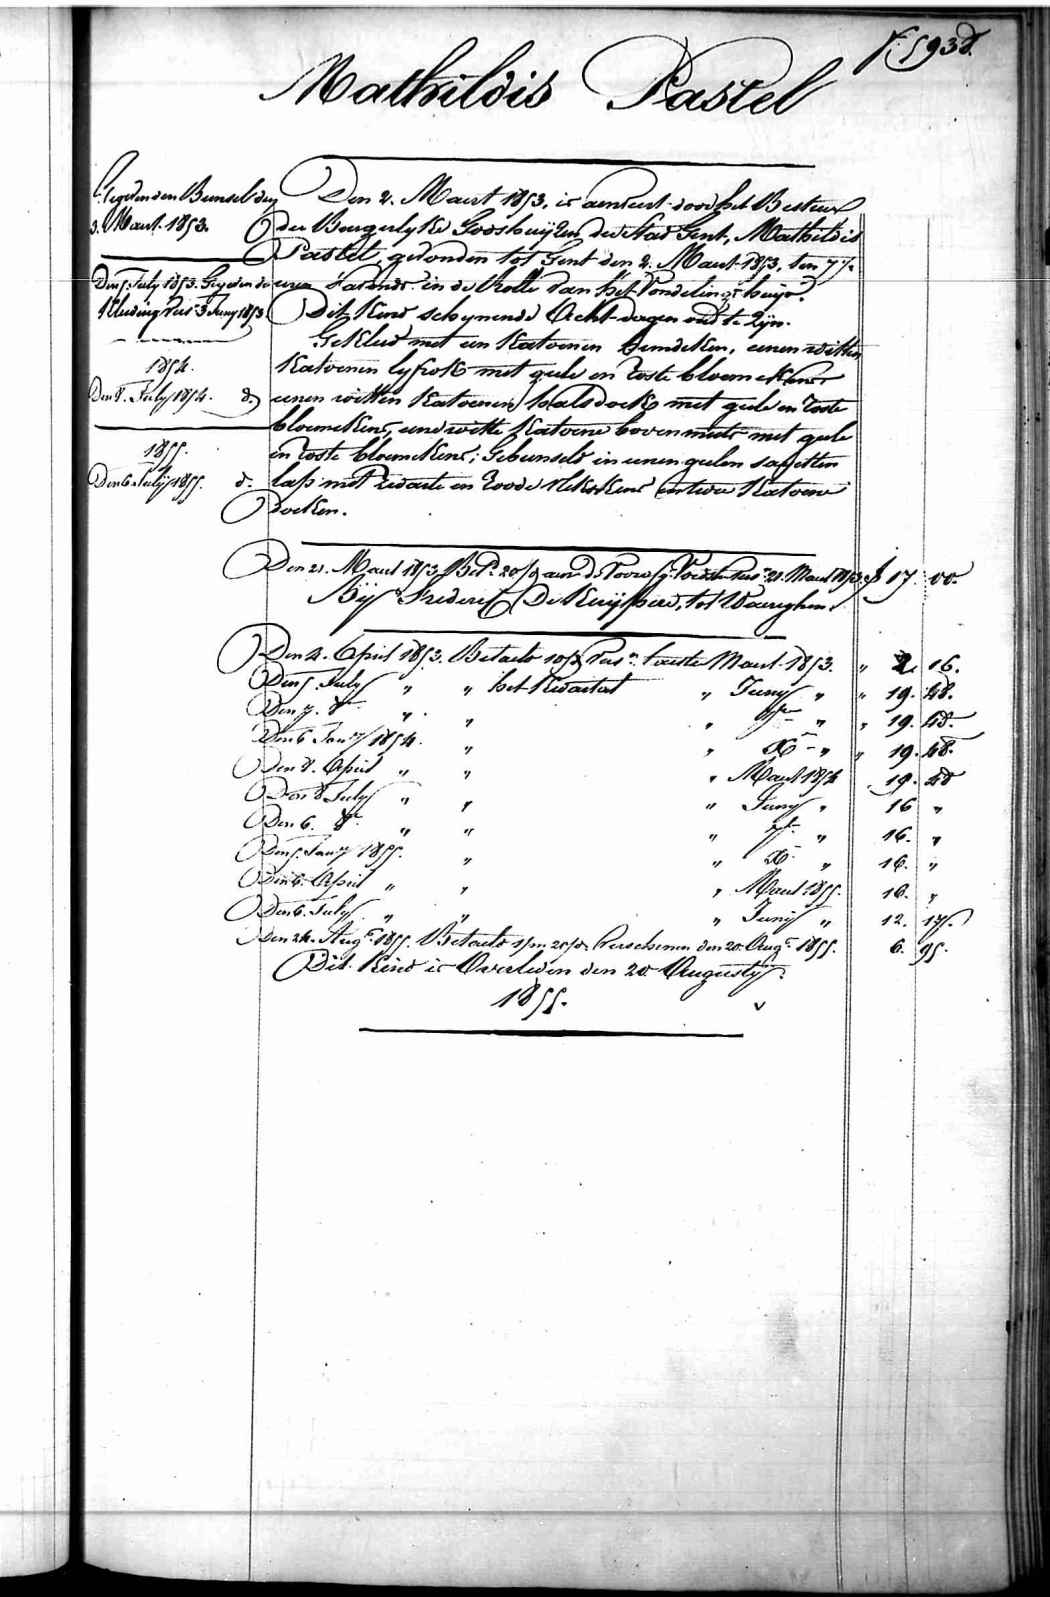 Mathildis Pastel
Gegeven den Bunsel den
3. Maart 1853.
Den 5 July 1853. Gegeven de
Kleeding Vers 3 Juny 1853.
1854.
Den 8. July 1854. do
1855.
Den 6 July 1855. do
Den 2. Maart 1853. is aenveert door het Bestuer
der Burgerlyke Godshuyzen der Stad Gent, Mathildis
Pastel, gevonden tot Gent den 2. Maart 1853, ten 7 1/2
uren s'avonds in de Rolle van het Vondelingshuys.
Dit Kind schynende Acht dagen oud te Zyn.
Gekleed met een Katoenen hemdeken, eenen witten
Katoenen lyfrok met geele en roste bloemekens
eenen witten Katoenen halsdoek met geele en roste
bloemekens, eene witte Katoene bovenmuts met geele
en roste bloemekens; Gebunseld in eenen geelen sayetten
lap met zwarte en roode vlekskens en twee Katoene
doeken.
Den 21. Maart 1853 Bet. aen de Voorsz. Voedster 21. Maart 1853 f 17. 00.
Bÿ Frederic De Kuÿpere, tot Waereghem.
Den 4. April 1853. Betaeld Vers. Laeste Maart 1853. " 2. 16.
Den 5. July " " het Kwartael " Juny " " 19. 48.
Den 7. 8re " " " 7bre " " 19. 48.
Den 6 Janry 1854. " " Xbre " " 19. 48.
Den 8. April " " " Maart 1854 19. 48
Den 8 July " " " Juny " 16 "
Den 6. 8re " " " 7bre " 16. "
Den 5. Janry 1855. " " Xbre " 16. "
Den 6. April " " " Maart 1855. 16. "
Den 6. July " " " Juny " 12. 17.
Den 24. Augt 1855. Betaeld Verschenen den 20. Augt 1855. 6. 95.
Dit Kind is Overleden den 20 Augusty
1855.